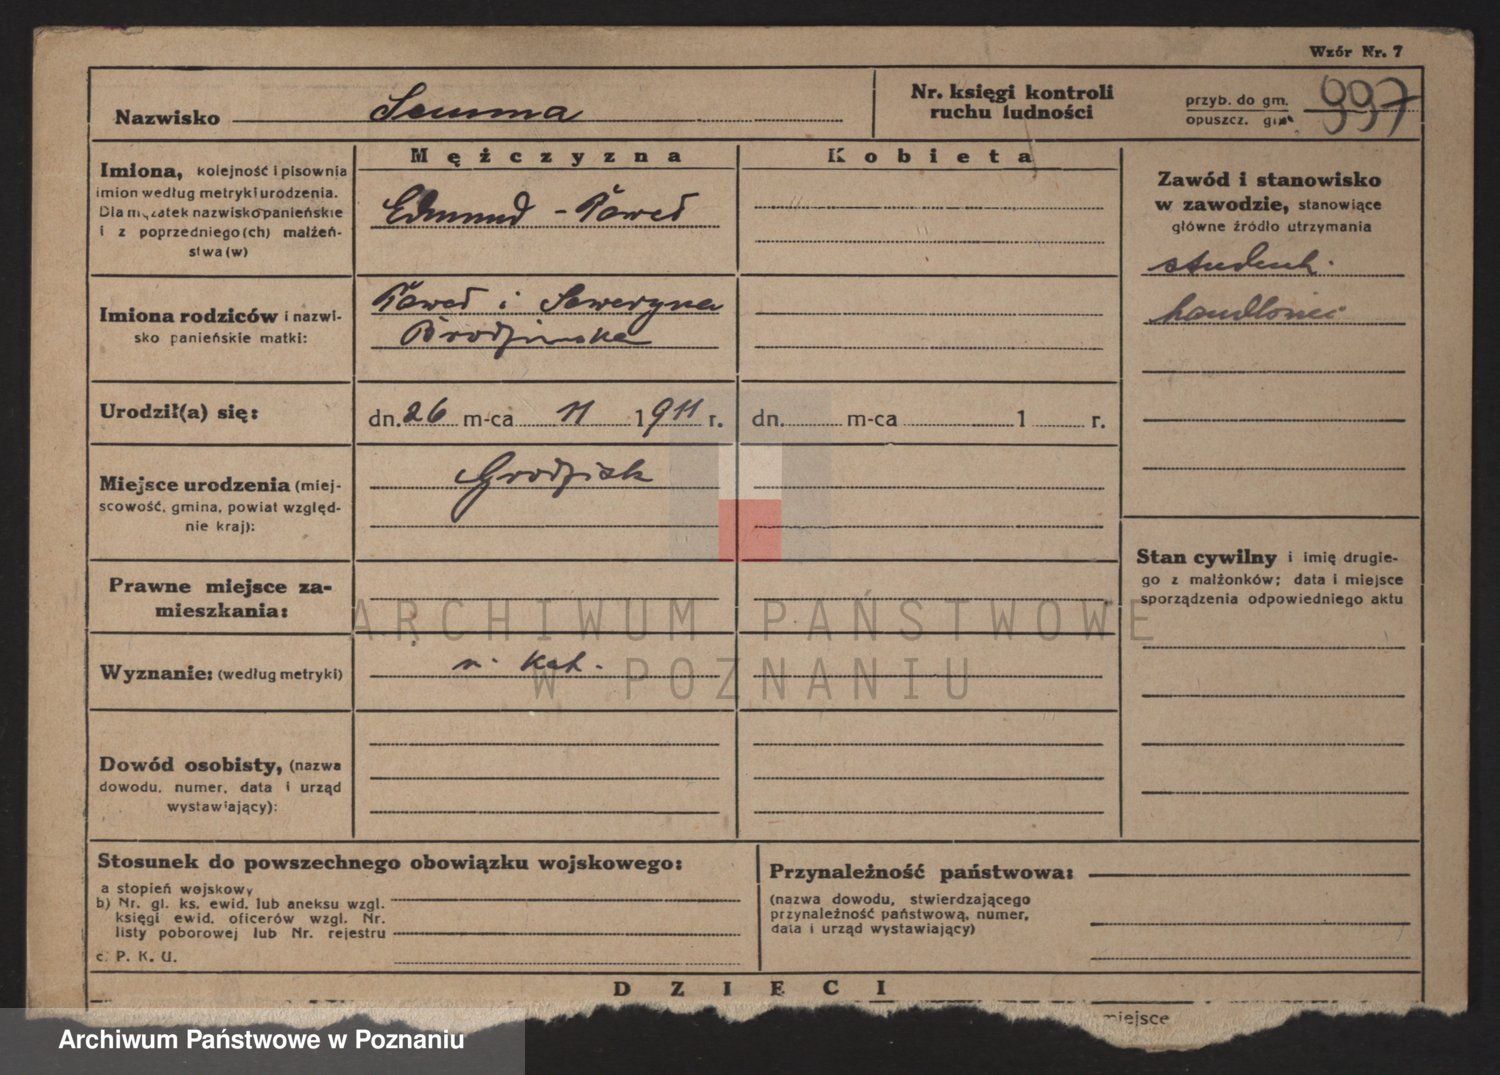 Wzór Nr. 7
Nazwisko
Nr. księgi kontroli
ruchu ludności
przyb. do gm.
opuszcz. gm.
997
Mężczyzna
Kobieta
Imiona, kolejność i pisownia
imion według metryki urodzenia.
Dla mężatek nazwisko panieńskie
i z poprzedniego(ch) małżeń-
stwa(w)
Edmund - Paweł
Zawód i stanowisko
w zawodzie, stanowiące
główne źródło utrzymania
student
handlowiec
Imiona rodziców i nazwi-
sko panieńskie matki:
Paweł i Seweryna
Brodzińska
Urodził(a) się:
dn. 26 m-ca 11 1911 r.
dn. m-ca 1 r.
Miejsce urodzenia (miej-
scowość, gmina, powiat względ-
nie kraj):
Grodzisk
Stan cywilny i imię drugie-
go z małżonków; data i miejsce
sporządzenia odpowiedniego aktu
Prawne miejsce za-
mieszkania:
ARCHIWUM PAŃSTWOWE
W POZNANIU
Wyznanie: (według metryki)
r. kat.
Dowód osobisty, (nazwa
dowodu, numer, data i urząd
wystawiający):
Stosunek do powszechnego obowiązku wojskowego:
a stopień wojskowy
b) Nr. gl. ks. ewid. lub aneksu wzgl.
księgi ewid. oficerów wzgl. Nr.
listy poborowej lub Nr. rejestru
c. P. K. U.
Przynależność państwowa:
(nazwa dowodu, stwierdzającego
przynależność państwową, numer,
data i urząd wystawiający)
DZIECI
miejsce
Archiwum Państwowe w Poznaniu